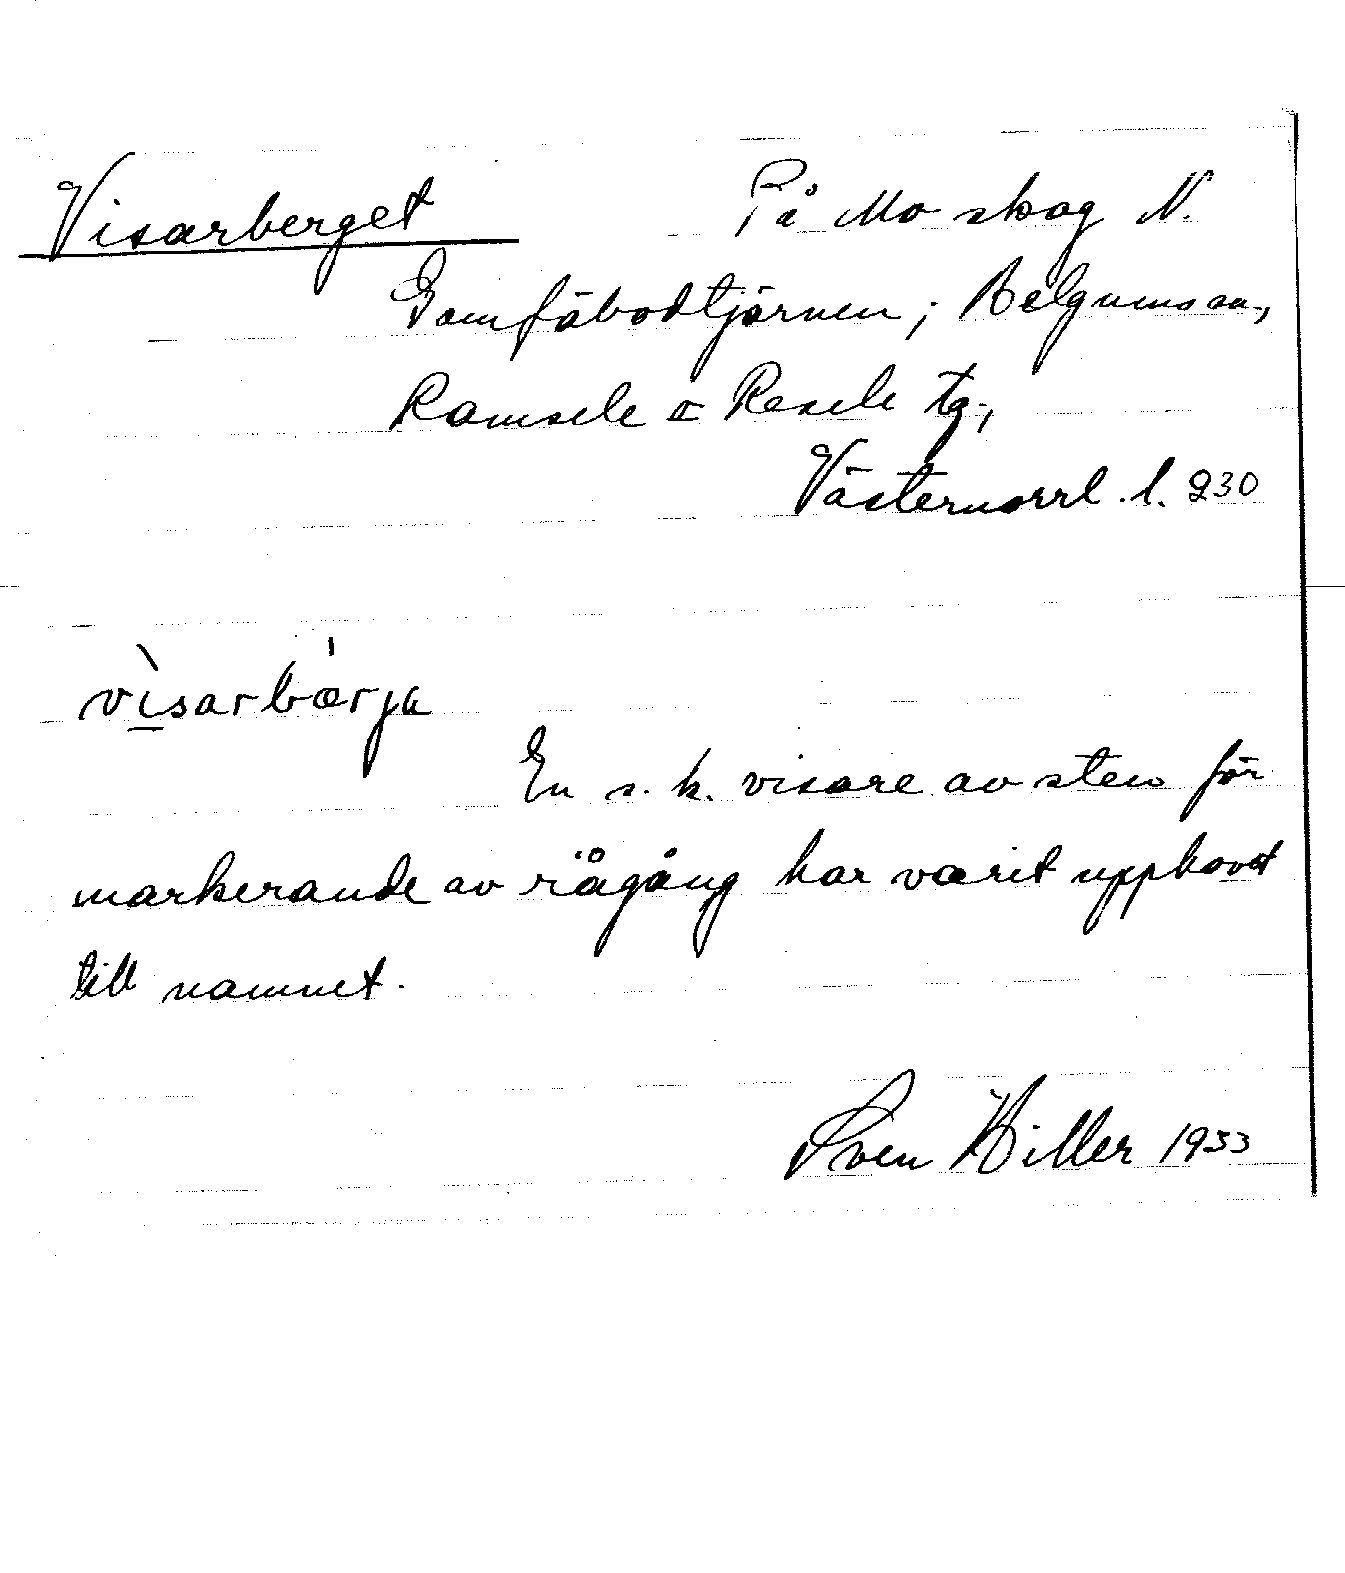 Visarberget På Mo skog N.
Gamfäbodtjärnen; Helgumsån,
Ramsele o Resele tg,
Västernorrl. l. 230
vìsarbærja
En s. k. visare av sten för
markerande av rågång har varit upphovet
till namnet.
Sven Hiller 1933